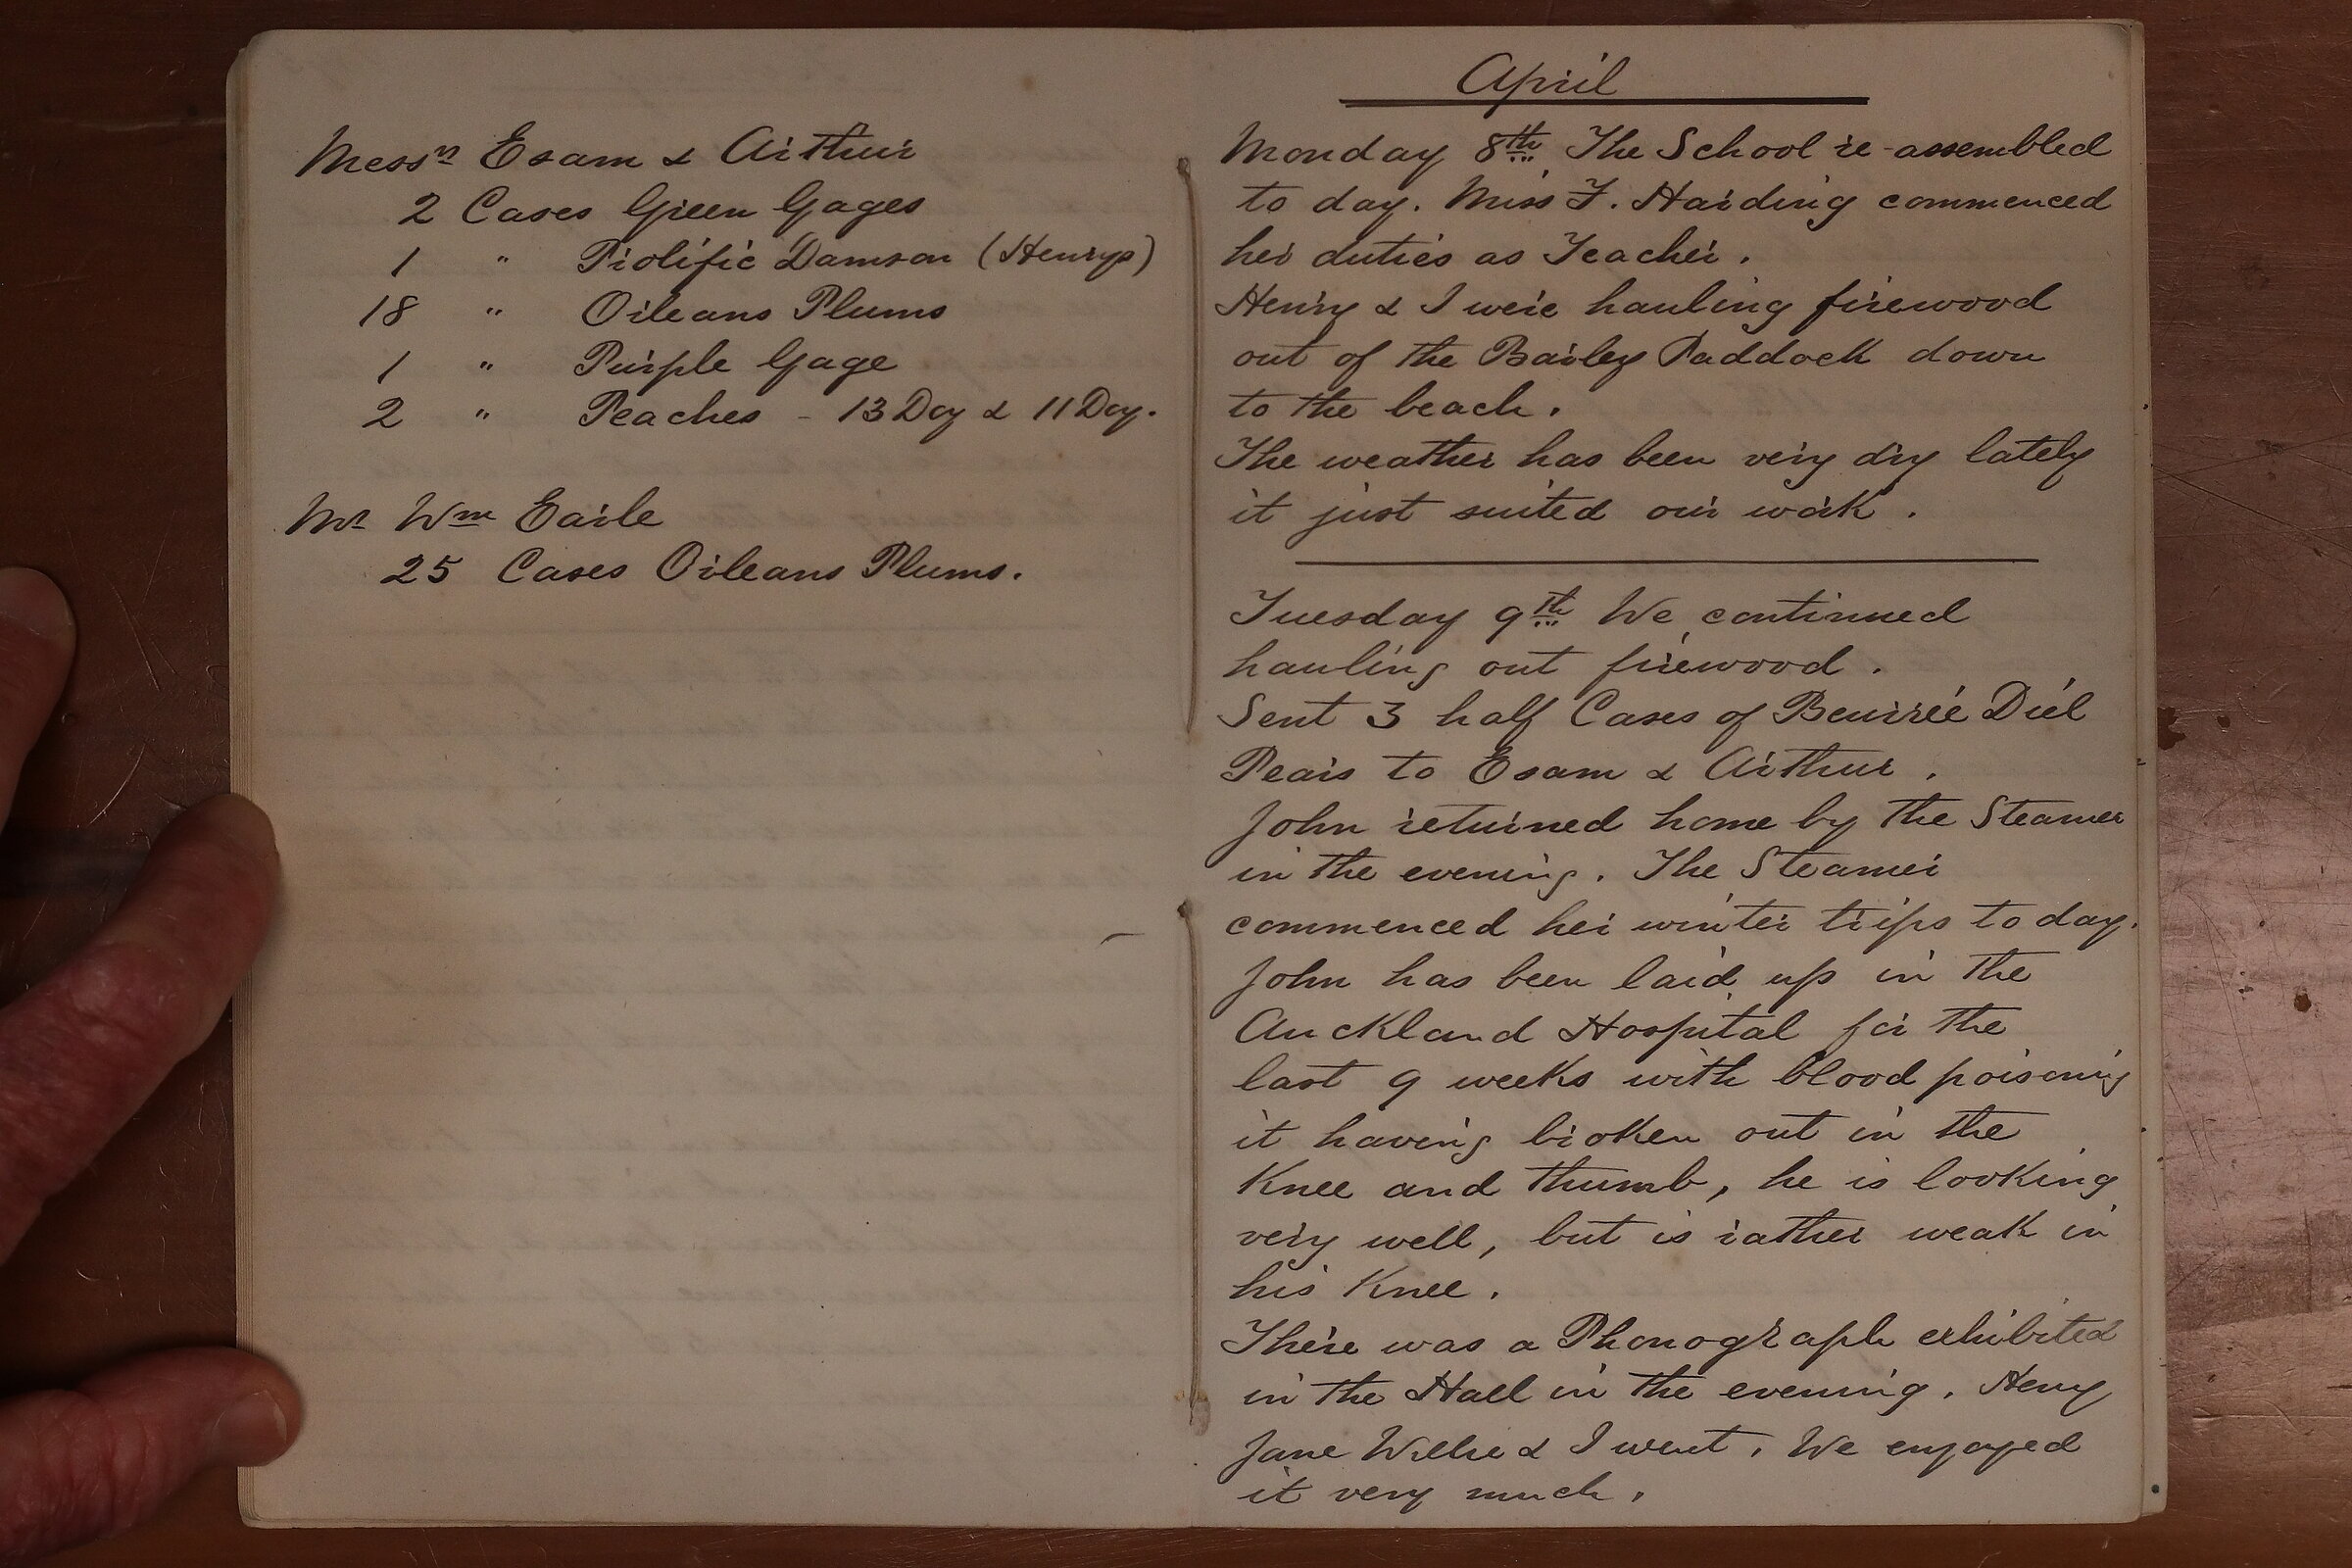 Messrs Esam & Arthur
2 Cases Green Gages
1 " Prolific Damson (Henrys)
18 " Orleans Plums
1 " Purple Gage
2 " Peaches - 13 Doz & 11 Doz.
Mr Wm Earle
25 Cases Orleans Plums.
April
Monday 8th The School re-assembled
to day. Miss F. Harding commenced
her duties as Teacher.
Henry & I were hauling firewood
out of the Barley Paddock down
to the beach.
The weather has been very dry lately
it just suited our work.
Tuesday 9th We continued
hauling out firewood.
Sent 3 half Cases of Beurreé Diel
Pears to Esam & Arthur.
John returned home by the Steamer
in the evening. The Steamer
commenced her winter trips to day.
John has been laid up in the
Auckland Hospital for the
last 9 weeks with blood poisoning
it having broken out in the
Knee and thumb, he is looking
very well, but is rather weak in
his Knee.
There was a Phonograph exhibited
in the Hall in the evening. Henry
Jane Willie & I went. We enjoyed
it very much.